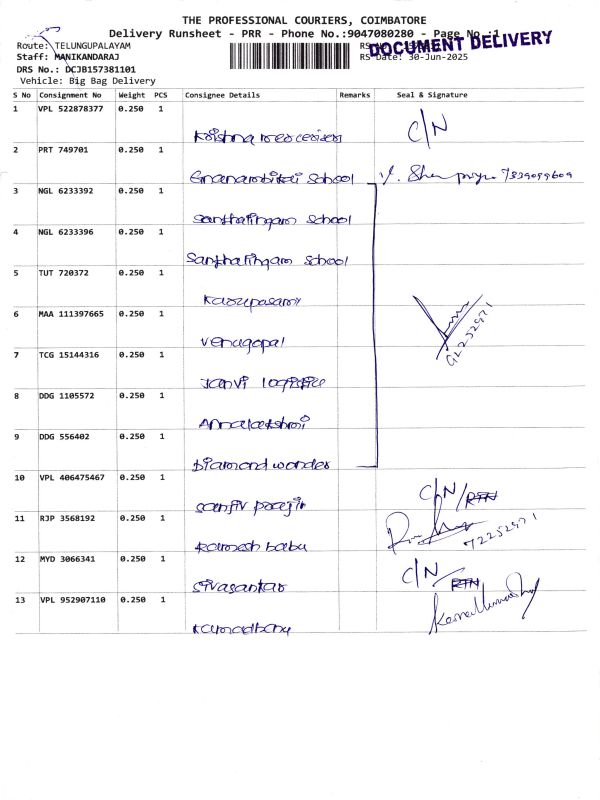 THE PROFESSIONAL COURIERS, COIMBATORE
Delivery Runsheet - PRR - Phone No.:9047080280 - Page No.:1
Route: TELUNGUPALAYAM
DOCUMENT DELIVERY
Staff: MANIKANDARAJ RS Date: 30-Jun-2025
DRS No.: DCJB157381101
Vehicle: Big Bag Delivery
S No Consignment No Weight PCS Consignee Details Remarks Seal & Signature
1 VPL 522878377 0.250 1
Krishna C/N
2 PRT 749701 0.250 1
School 7539099609
3 NGL 6233392 0.250 1
Santhalingam School
4 NGL 6233396 0.250 1
Santhalingam School
5 TUT 720372 0.250 1
Karupasamy
6 MAA 111397665 0.250 1
Venugopal
7 TCG 15144316 0.250 1
Janvi logistic
8 DDG 1105572 0.250 1
Annalakshmi
9 DDG 556402 0.250 1
Diamond wonder
10 VPL 406475467 0.250 1
C/N/RTN
11 RJP 3568192 0.250 1
Ramesh babu
12 MYD 3066341 0.250 1
C/N RTN
Sivasankar
13 VPL 952907110 0.250 1